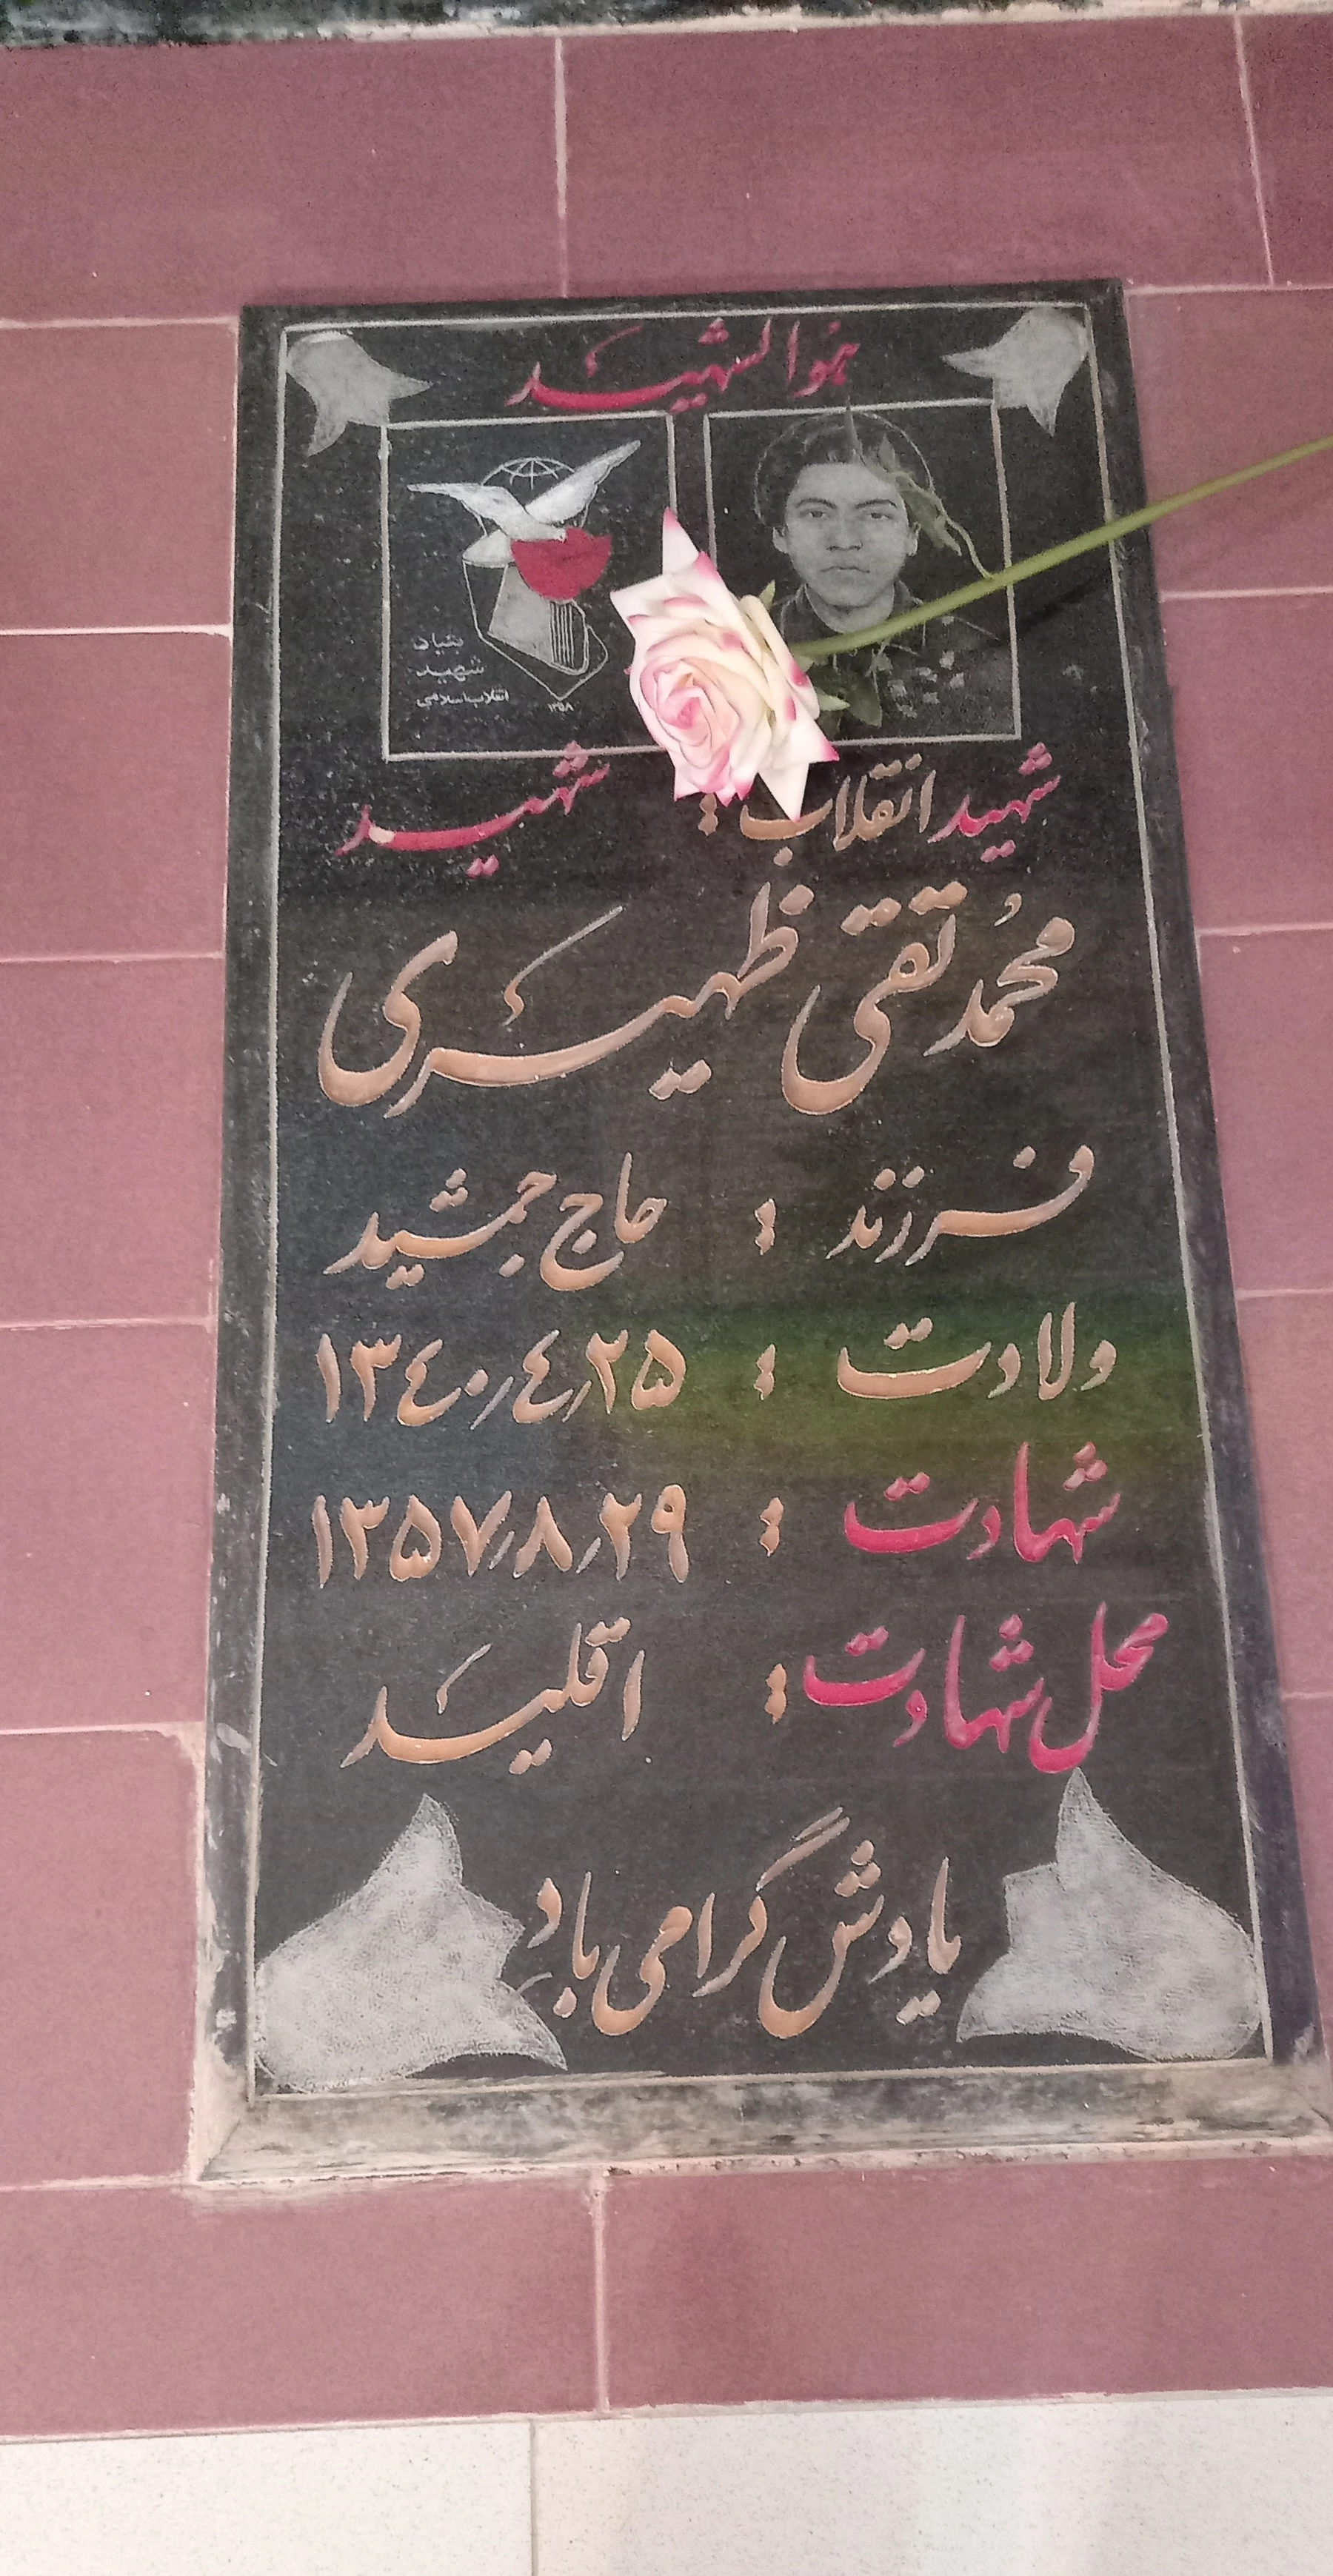 هوالشهید
بنیاد
شهید
انقلاب اسلامی
۱۳۵۸
شهید انقلاب : شهید
محمد تقی ظهیری
فرزند : حاج جمشید
ولادت : ۱۳٤۰٫٤٫۲۵
شهادت : ۱۳۵۷٫۸٫۲۹
محل شهادت : اقلید
یادش گرامی باد